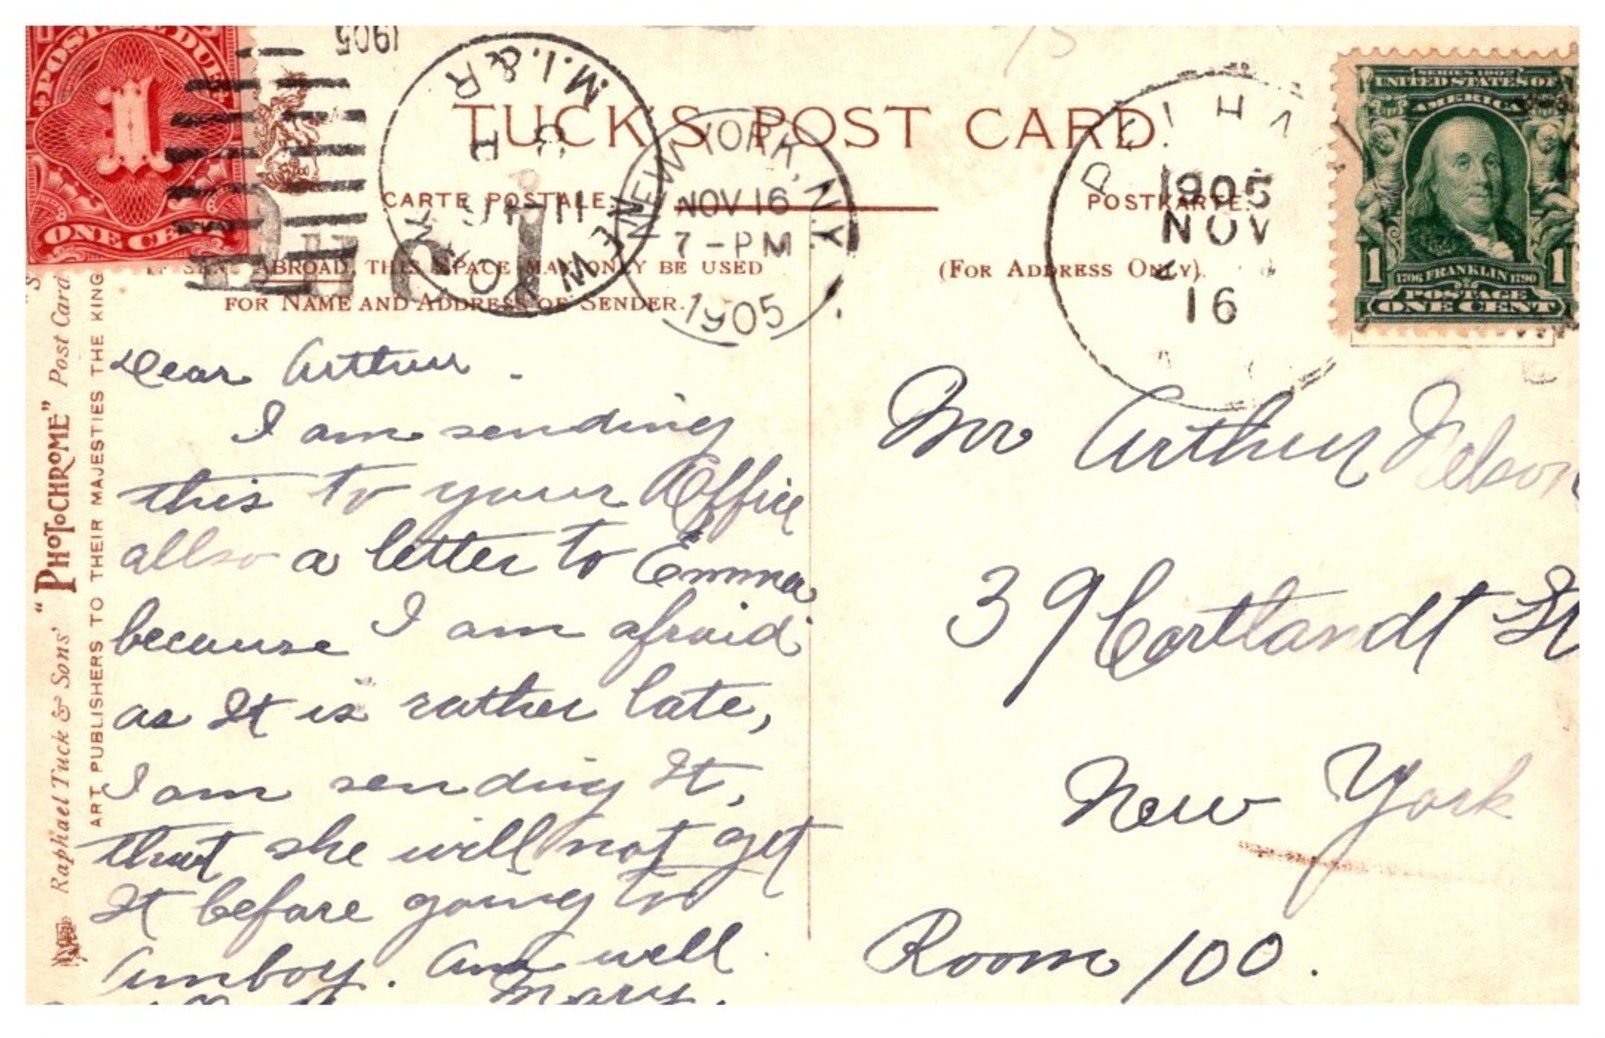 POSTAGE DUE
1
ONE CENT
1905
M.I.&R
NEW YORK
TUCK'S POST CARD.
CARTE POSTALE
POSTKARTE.
NEW YORK, N.Y.
NOV 16
7-PM
1905
1905
NOV
16
SERIES 1902
UNITED STATES OF
AMERICA
1706 FRANKLIN 1790
1 1
POSTAGE
ONE CENT
ABROAD, THIS SPACE MAY ONLY BE USED
FOR NAME AND ADDRESS OF SENDER.
(FOR ADDRESS ONLY).
Raphael Tuck & Sons' "PHOTOCHROME" Post Card
ART PUBLISHERS TO THEIR MAJESTIES THE KING
Dear Arthur.
I am sending
this to your Office
allso a letter to Emma
because I am afraid
as It is rather late,
I am sending It,
that she will not get
It before going to
Amboy. Am well.
Mary.
Mr Arthur Nelson
39 Cortlandt St
New York
Room 100.